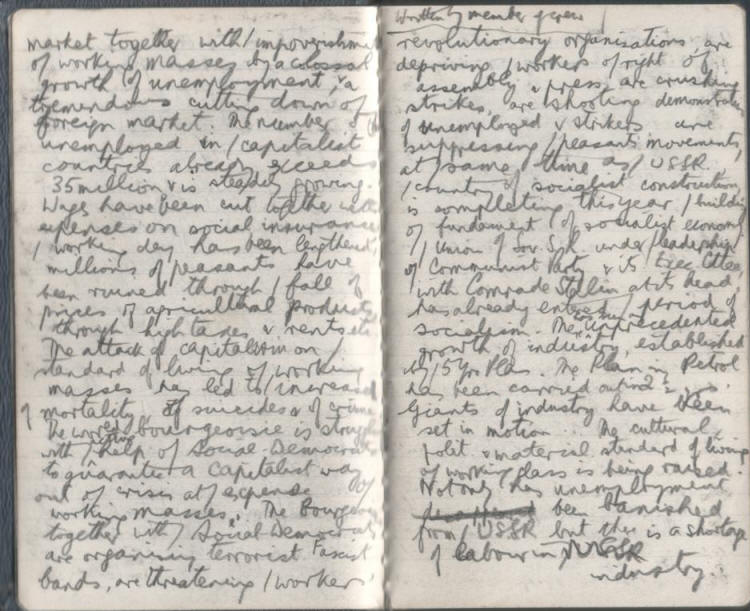 market together with / impoverishm
of working masses by a colossal
growth of unemployment, & a
tremendous cutting down of
foreign market. The number
unemployed in / capitalist
countries already exceeds
35 million & is steadily growing.
Wages have been cut together with
expenses on social insurance
/ working day has been lengthened,
millions of peasants have
been ruined through / fall of
prices of agricultural products
through high taxes & rents etc
The attack of capitalism on /
standard of living of working
masses has led to / increased
mortality of suicides & of crime
The world bourgeoisie is
with / help of Social-Democrats
to guarantee a capitalist way
out of crisis at / expense of
working masses. The Bourgeois
together with / Social Democrats
are organising terrorist Fascist
bands, are threatening / workers'
Written by member of crew
revolutionary organisations, are
depriving / workers of right of
assembly & press, are crushing
strikes, are shooting demonstrations
of unemployed & strikers are
suppressing / peasants movements,
at / same time as / USSR
/ country of socialist construction,
is completing this year / building
of fundament of socialist economy.
/ Union of Sov. under / leadership
of Communist Party & its Exec Cttee,
with Comrade Stalin at its head,
has already entered / period of
socialism. The unprecedented
growth of industry, established
by / 5 Yr Plan. The Plan in Petrol
has been carried out in 2½ yrs.
Giants of industry have been
set in motion. The cultural,
polit. & material standard of living
of working class is being raised.
Not only has unemployment
been banished
from / USSR but there is a shortage
of labour in / USSR
industry.